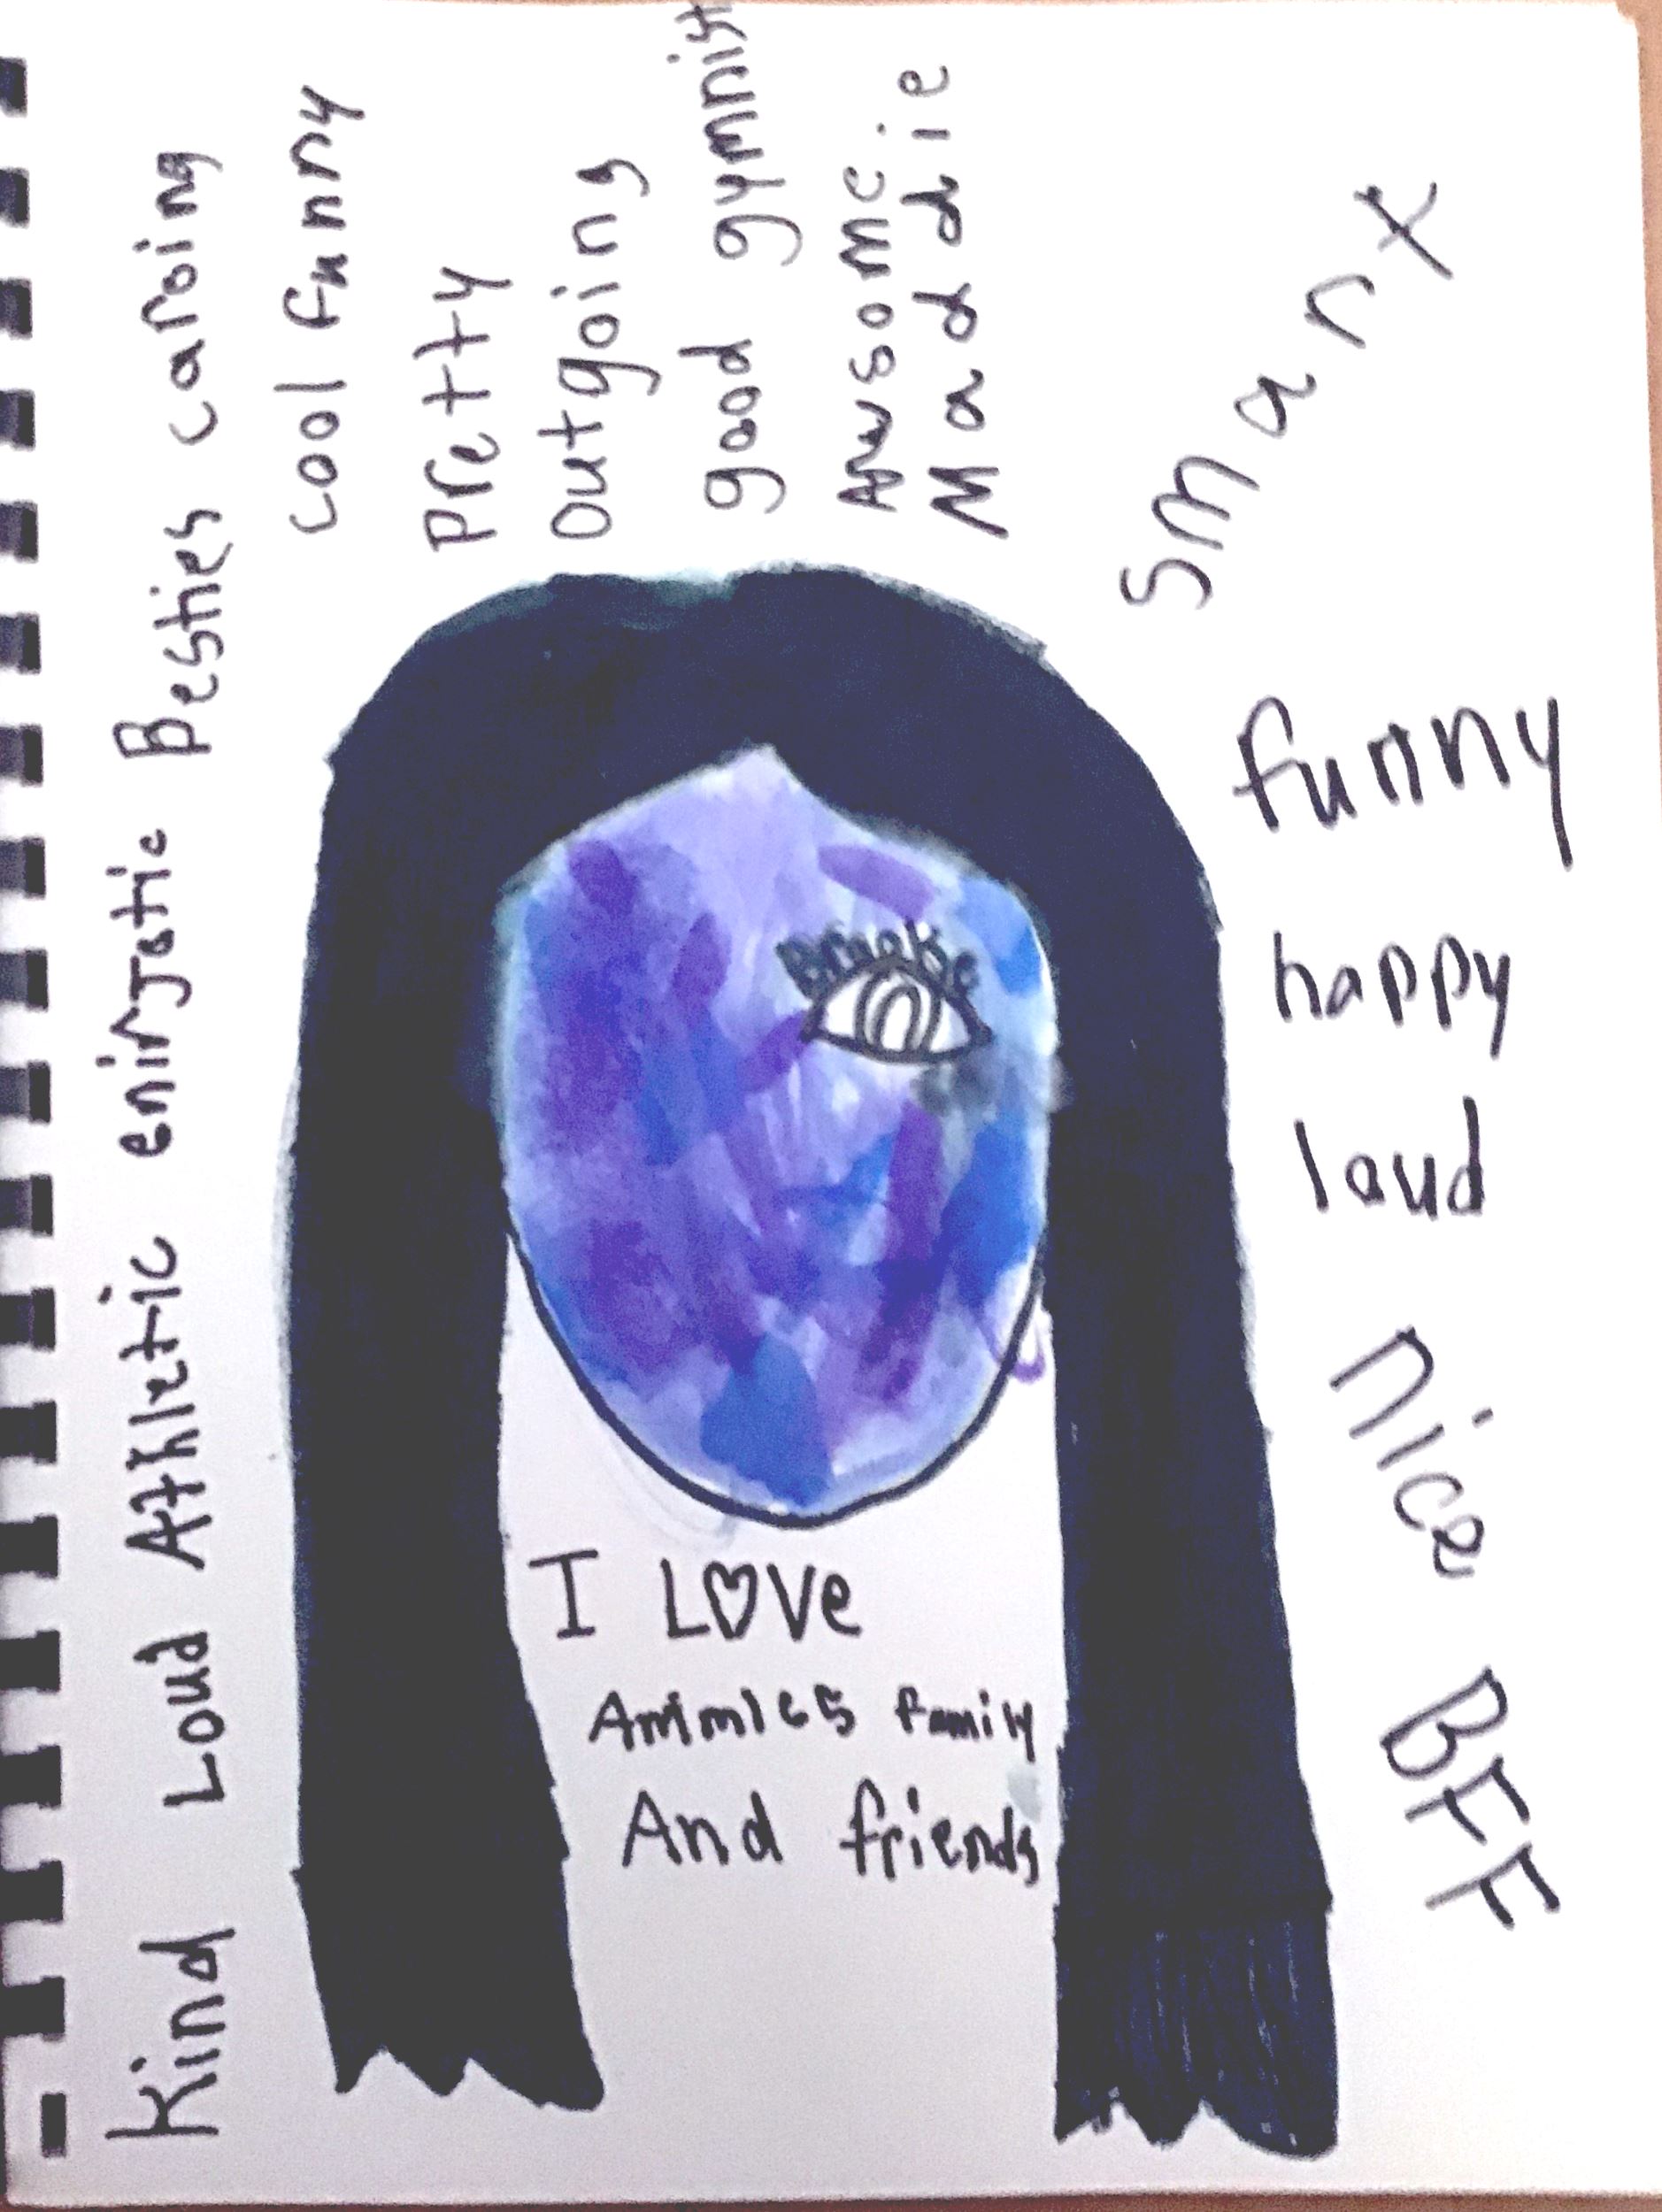 Kind Loud Athletic enirjatic Besties caroing
cool funny
Pretty
Outgoing
good gymnist
Awsome
Maddie
smart
funny
happy
loud
nice
BFF
Brooke
I LOVe
Animles family
And friends